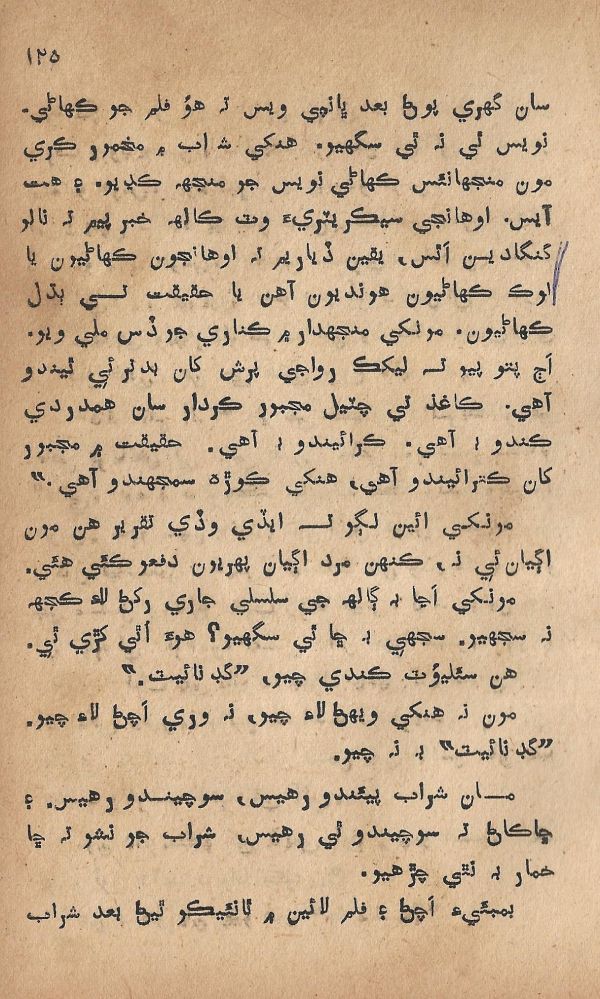 ۱۲۵
سان گهري پوڻ بعد ڀانڃي ويس تہ هوُ فلم جو ڪهاڻي.
نويس ئي نہ ٿي سگهيو. هنکي شراب ۾ مخمور ڪري
مون منجهانئس ڪهاڻي نويس جو منجهہ ڪڍيو. ۽ هت
آيس. اوهانجي سيڪريٽريءَ وٽ ڪالهہ خبر پيم تہ نالو
گنگاديسن اٿس، يقين ڏياريم تہ اوهانجون ڪهاڻيون يا
لوڪ ڪهاڻيون هونديون آهن يا حقيقت تــي ٻڌل
ڪهاڻيون. مونکي منجهدار ۾ ڪناري جو ڏس ملي ويو.
اڄ پتو پيو تــ ليکڪ رواجي پرش کان بدتر ئي ٿيندو
آهي. ڪاغذ تي چٽيل مجبور ڪردار سان همدردي
ڪندو ۽ آهي. ڪرائيندو ۽ آهي. حقيقت ۾ مجبور
کان ڪترائيندو آهي، هنکي ڪوڙه سمجهندو آهي.“
مونکي ائين لڳو تــ ايڏي وڏي تقرير هن مون
اڳيان ئي نہ، ڪنهن مرد اڳيان پهريون دفعو ڪئي هئي.
مونکي اڃا بہ ڳالهہ جي سلسلي جاري رکڻ لاءِ ڪجهہ
نہ سجهيو. سجهي بہ ڇا ٿي سگهيو؟ هوءَ اُٿي کڙي ٿي.
هن سئليوُٽ ڪندي چيو، ”گڊ نائيٽ.“
مون نہ هنکي ويهڻ لاءِ چيو، نہ وري اَچڻ لاءِ چيو.
”گڊ نائيٽ“ بہ نہ چيو.
مــان شراب پيئندو رهيس، سوچيندو رهيس. ۽
ڇاڪاڻ تہ سوچيندو ئي رهيس، شراب جو نشو تہ ڇا
خمار بہ نٿي چڙهيو.
بمبئيءَ اَچڻ ۽ فلم لائين ۾ ٿانئيڪو ٿيڻ بعد شراب